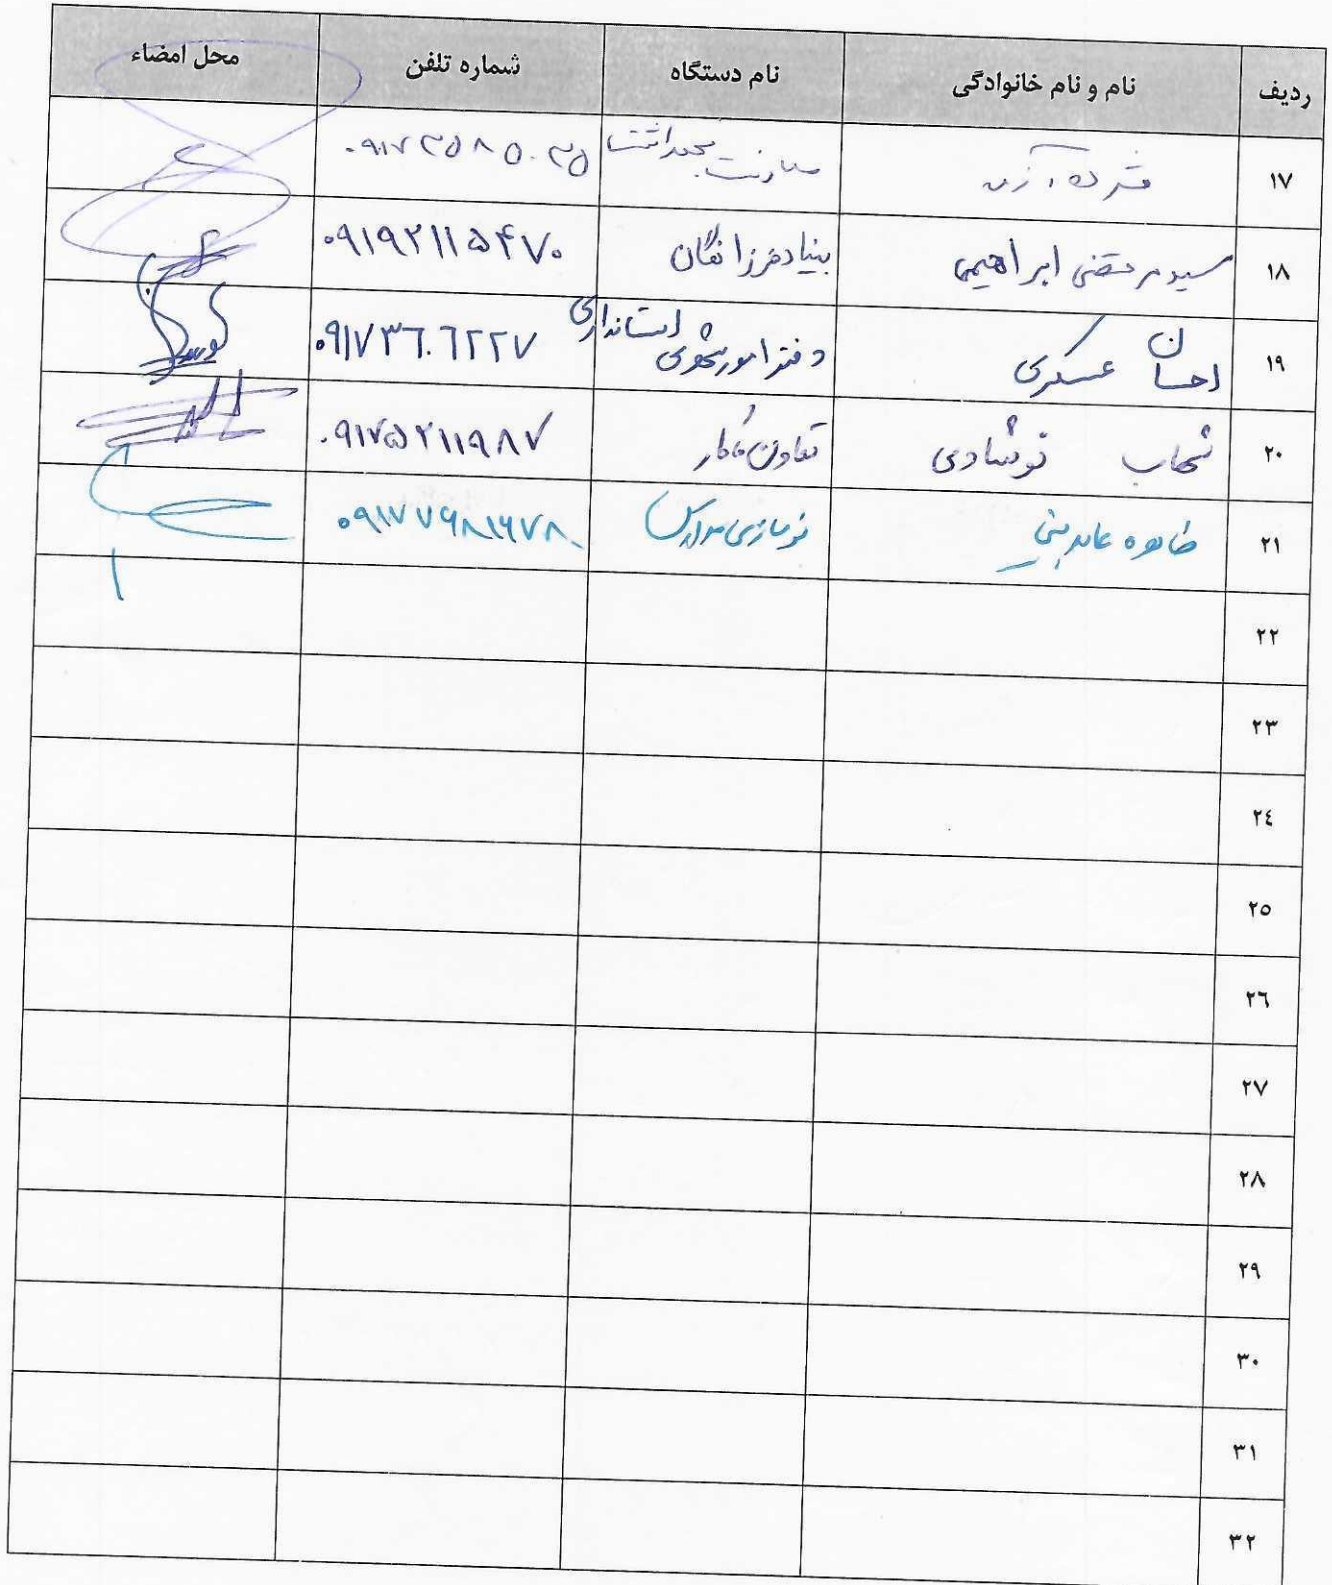 ردیف نام و نام خانوادگی نام دستگاه شماره تلفن محل امضاء
۱۷ بهداشت
۱۸ سید مرتضی ابراهیمی بنیاد فرزانگان ۰۹۱۹۲۱۱۵۴۷۰
۱۹ احسان عسکری دفتر امور استانداری ۰۹۱۷۳۶۰۶۲۲۷
۲۰ شهاب نوشادی تعاون کار ۰۹۱۷۵۲۱۱۹۸۷
۲۱ طاهره عابدینی نوسازی مدارس ۰۹۱۷۷۶۸۱۶۷۸
۲۲
۲۳
۲٤
۲٥
۲٦
۲۷
۲۸
۲۹
۳۰
۳۱
۳۲